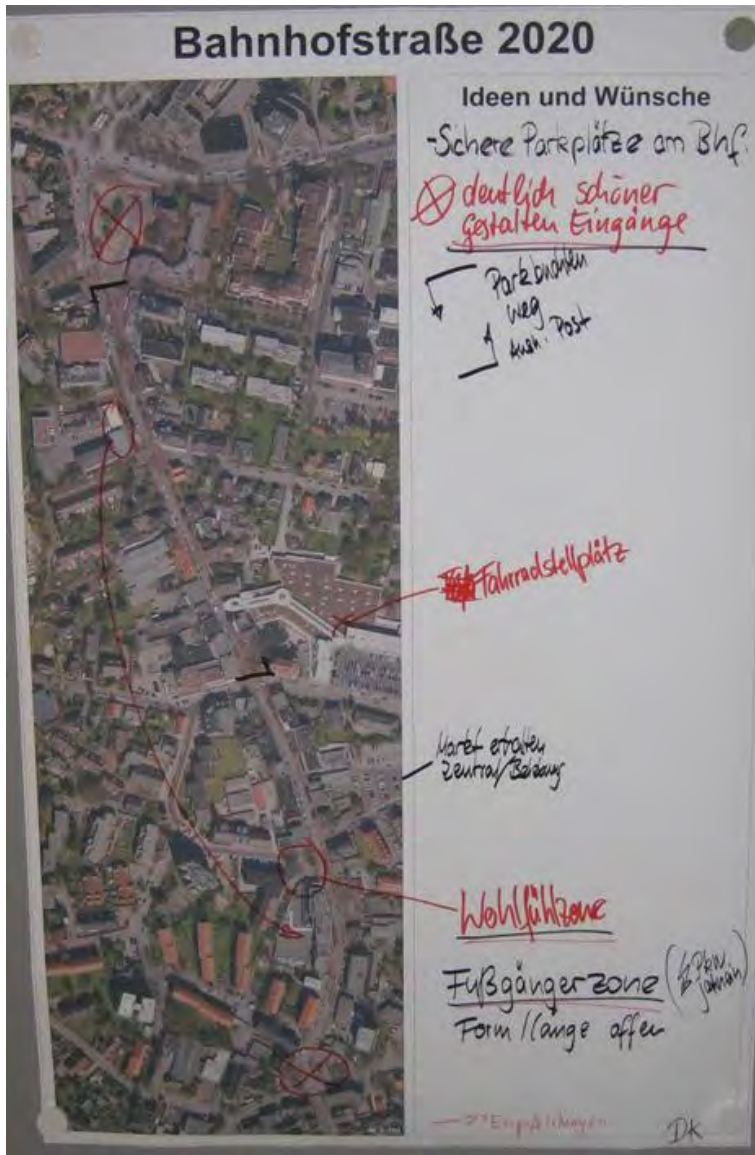 Bahnhofstraße 2020
Ideen und Wünsche
-Sichere Parkplätze am Bhf.
deutlich schöner
gestalten Eingänge
Parkbuchten
weg
Ausn. Post
Fahrradstellplätz
Markt erhalten
Zentral/Belebung
Wohlfühlzone
Fußgängerzone
Form/Länge offen
DK